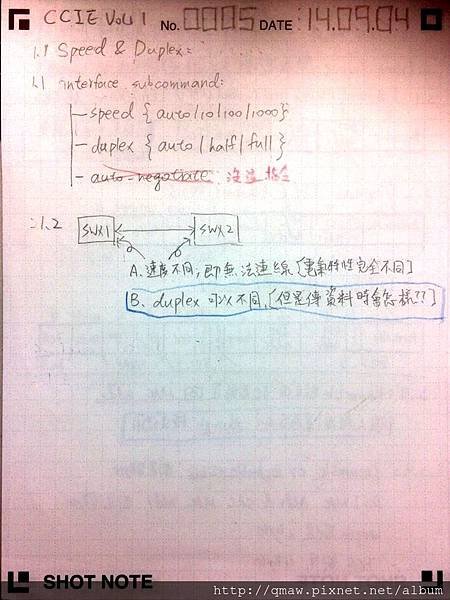 CCIE Vol 1 No. 0005 DATE :14.09.04
1.1 Speed & Duplex:
1.1 interface subcommand:
speed { auto/10/100/1000}
duplex { auto / half / full }
auto-negotiate 沒這指令
1.2 SWX1 SWX2
A. 速度不同, 即無法連線 [電氣特性完全不同]
B. duplex 可以不同, [但是傳資料時會怎樣??]
SHOT NOTE
http://qmaw.pixnet.net/album